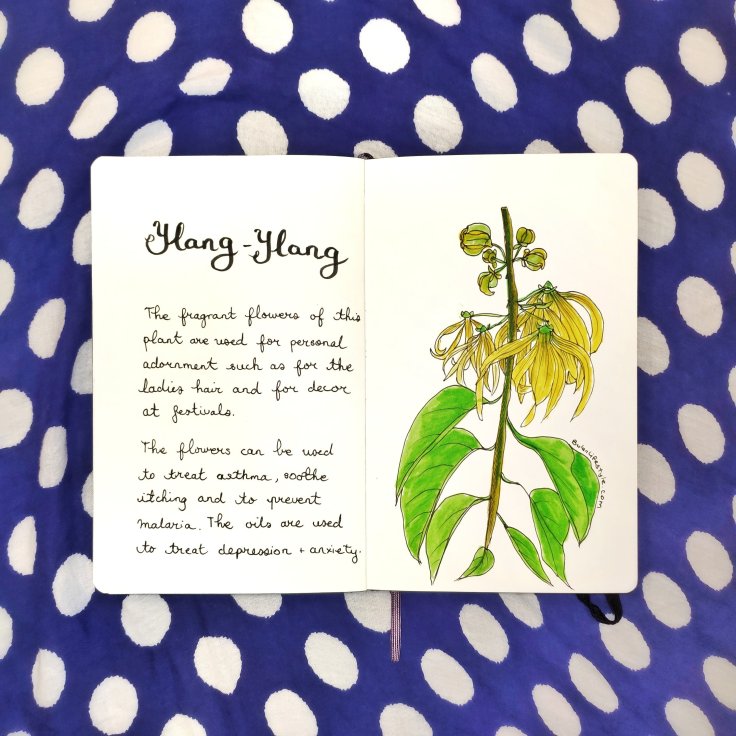 Ylang-Ylang
The fragrant flowers of this
plant are used for personal
adornment such as for the
ladies hair and for decor
at festivals.
The flowers can be used
to treat asthma, soothe
itching and to prevent
malaria. The oils are used
to treat depression + anxiety.